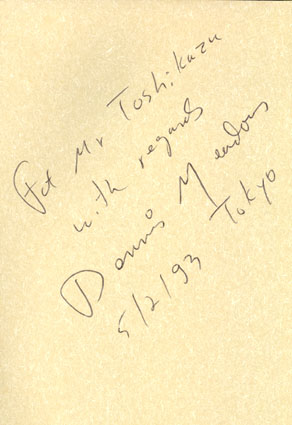 For Mr Toshikazu
with regards
Dennis Meadows
5/2/93 Tokyo